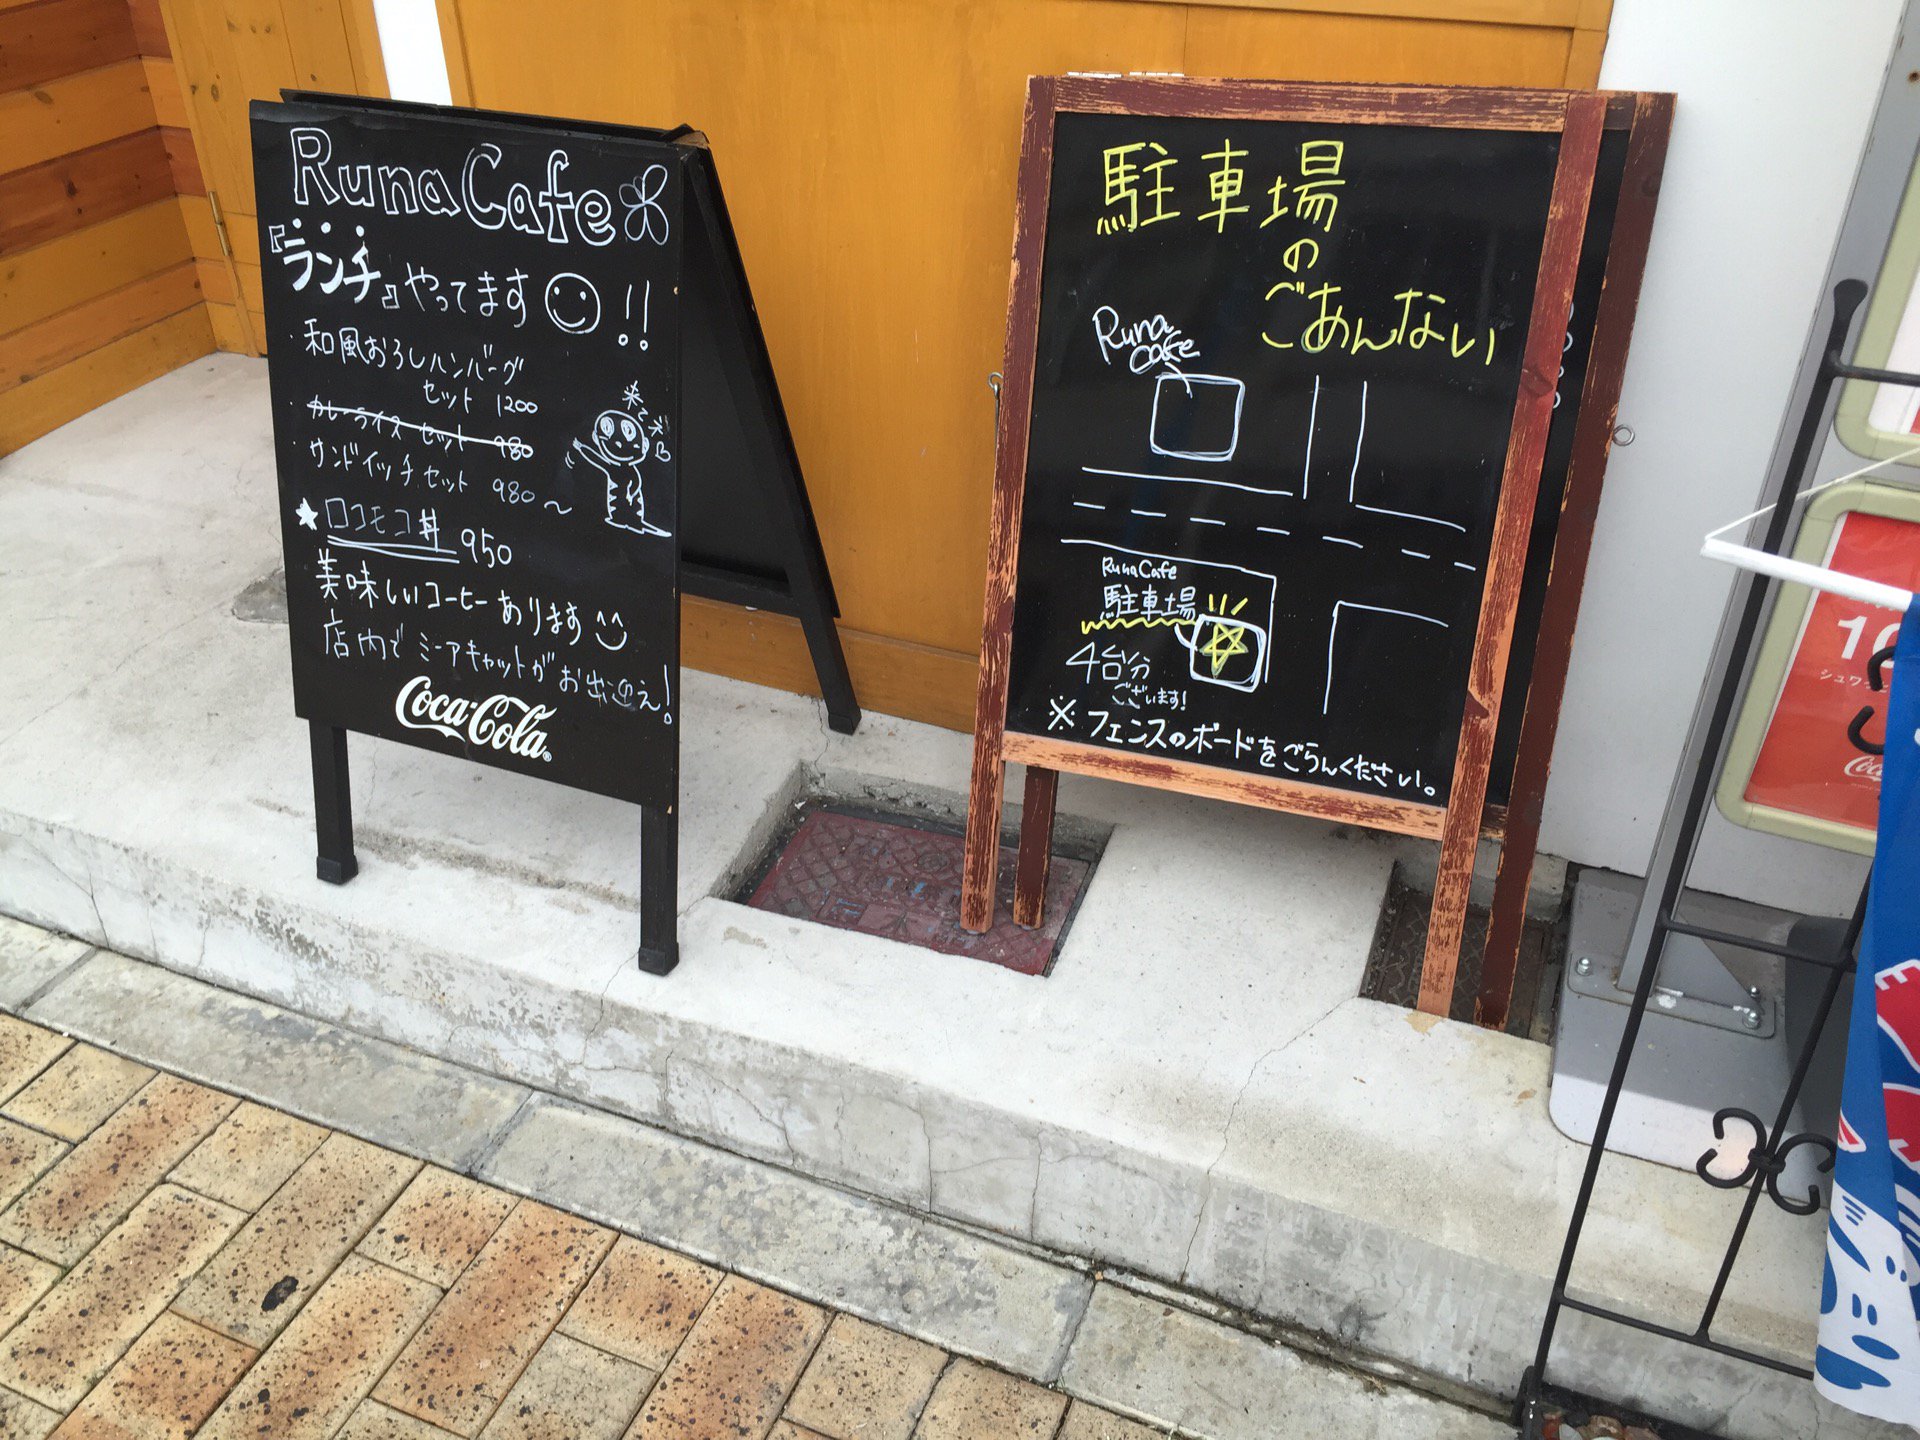 Runa Cafe
『ランチ』やってます!!
・和風おろしハンバーグ
セット 1200
・カレーライスセット 980
・サンドイッチセット 980〜
★ロコモコ丼 950
美味しいコーヒーあります
店内でミーアキャットがお出迎え!
来てネ
Coca-Cola
駐車場
の
ごあんない
Runa
cafe
Runa Cafe
駐車場
4台分
ございます!
※フェンスのボードをごらんください。